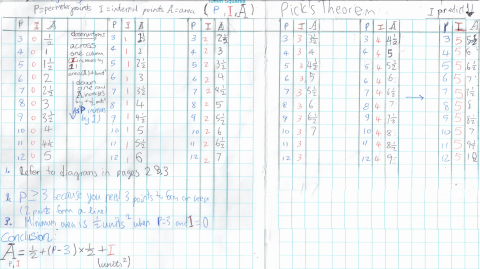 P=perimeter points I=internal points A=area (P,I,A)
Pick's Theorem
I predict
P I A
3 0 1/2
4 0 1
5 0 1 1/2
6 0 2
7 0 2 1/2
8 0 3
9 0 3 1/2
10 0 4
11 0 4 1/2
12 0 5
across
one column
down
one row
P I A
3 1 1 1/2
4 1 2
5 1 2 1/2
6 1 3
7 1 3 1/2
8 1 4
9 1 4 1/2
10 1 5
11 1 5 1/2
12 1 6
P I A
3 2 2 1/2
4 2 3
5 2 3 1/2
6 2 4
7 2 4 1/2
8 2 5
9 2 5 1/2
10 2 6
11 2 6 1/2
12 2 7
P I A
3 3 3 1/2
4 3 4
5 3 4 1/2
6 3 5
7 3 5 1/2
8 3 6
9 3 6 1/2
10 3 7
11 3
12 3
P I A
3 4 4 1/2
4 4 5
5 4 5 1/2
6 4 6
7 4 6 1/2
8 4 7
9 4 7 1/2
10 4 8
11 4 8 1/2
12 4 9
P I A
3 5 5 1/2
4 5 6
5 5 6 1/2
6 5 7
7 5 7 1/2
8 5 8
9 5 8 1/2
10 5 9
11 5 9 1/2
12 5 10
1. Refer to diagrams in pages 2 & 3
2. P ≥ 3 because you need 3 points to form an area
(2 points form a line)
3. Minimum area is 1/2 units² when P=3 and I=0
Conclusion
A = 1/2 + (P-3) × 1/2 + I
P, I
(units²)